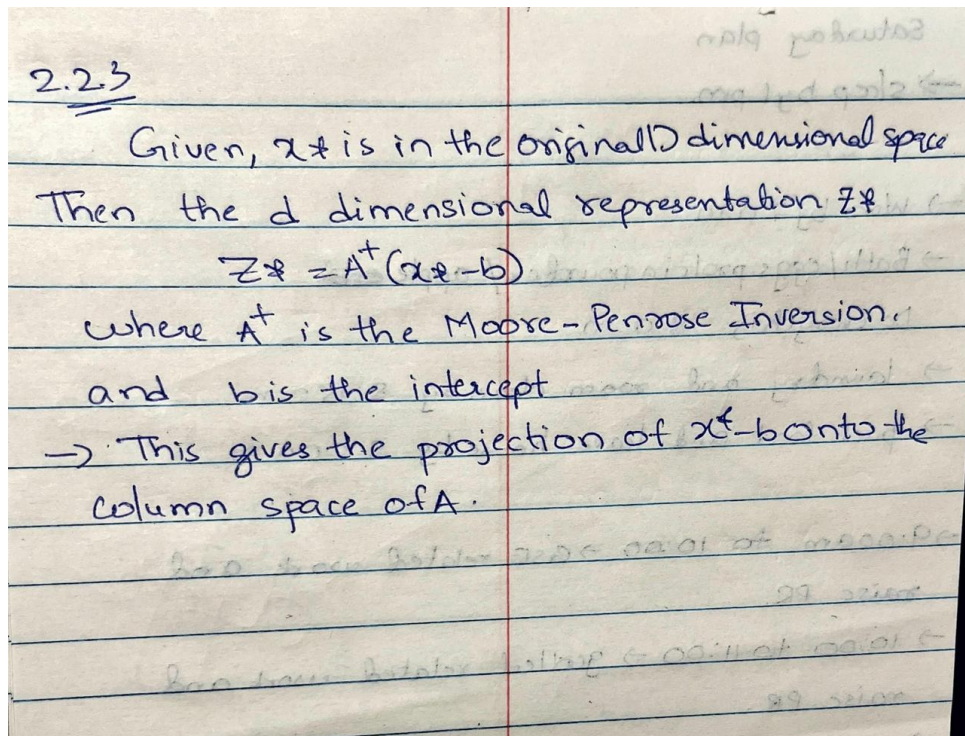 2.2.3
Given, x* is in the original D dimensional space
Then the d dimensional representation Z*
Z* = A⁺(x*-b)
where A⁺ is the Moore-Penrose Inversion.
and b is the intercept
→ This gives the projection of x*-b onto the
column space of A.